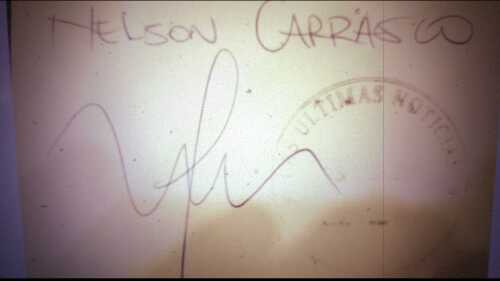 NELSON CARRASCO
ULTIMAS NOTICI